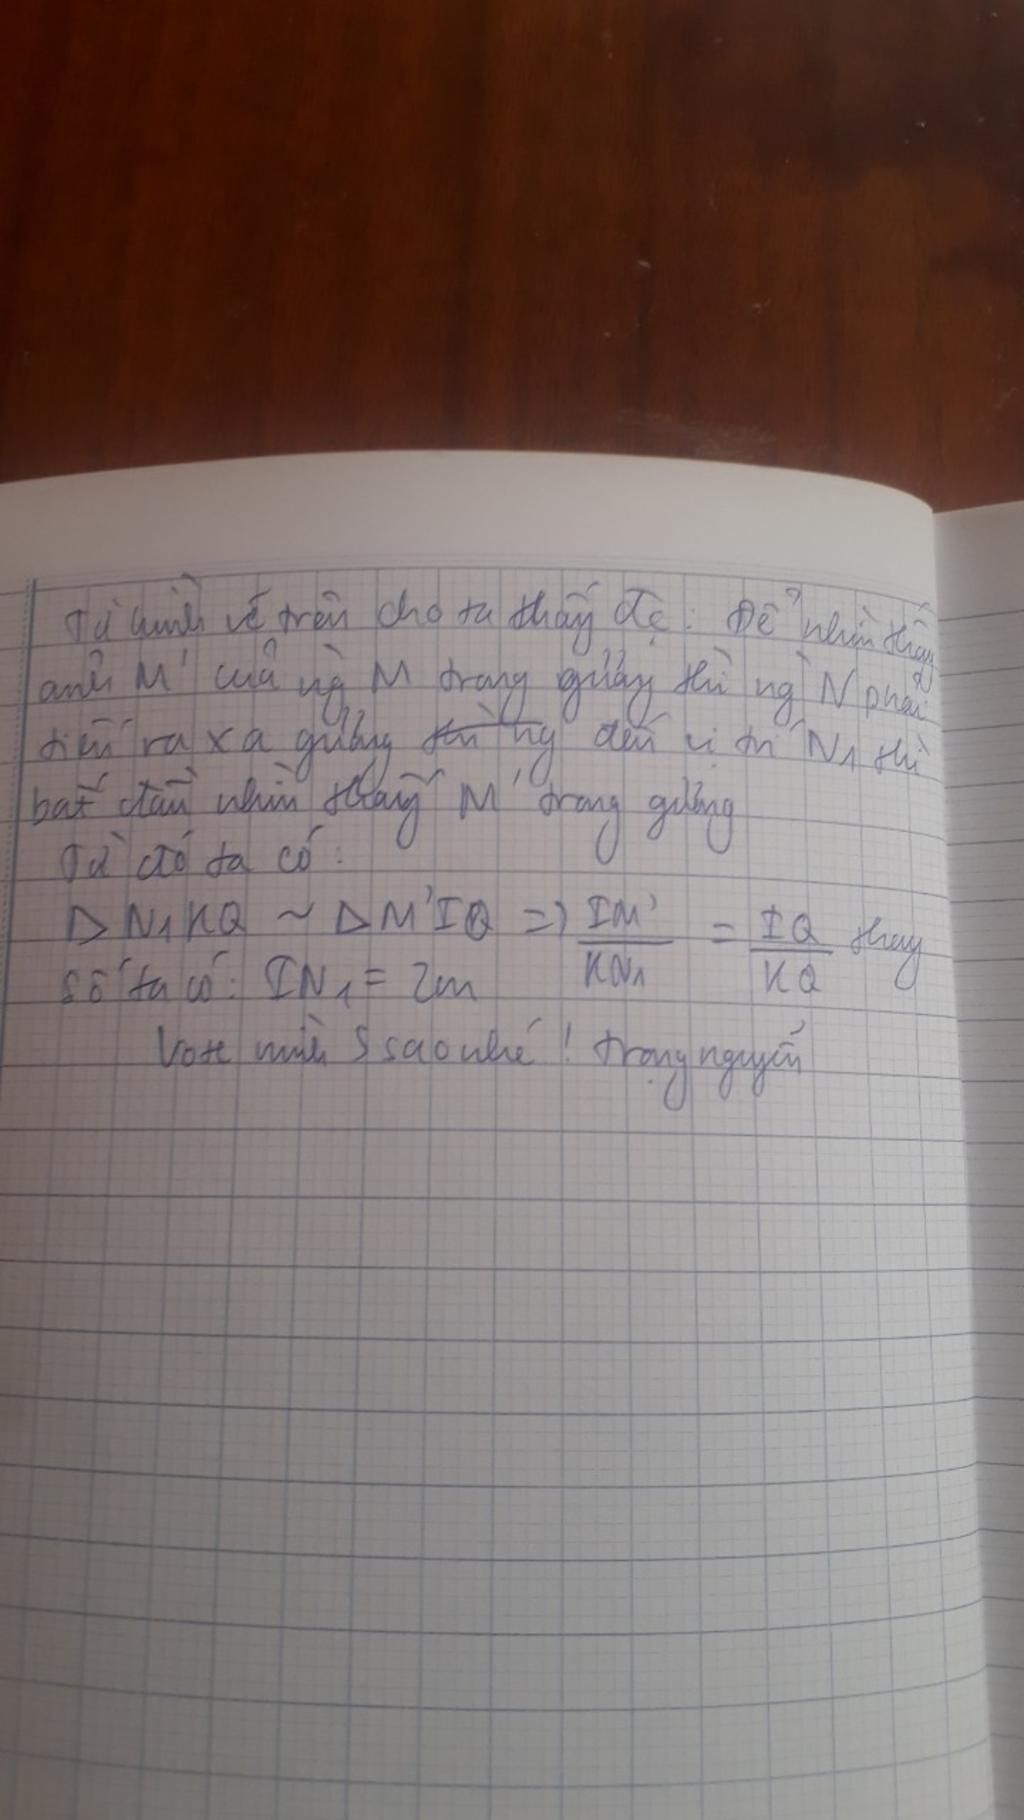 Từ hình vẽ trên cho ta thấy đc: Để nhìn thấy
ảnh M' của ng M trong gương thì ng N phải
tiến ra xa gương thì ng đến vị trí N1 thì
bắt đầu nhìn thấy M' trong gương
Từ đó ta có:
Δ N1KQ ~ Δ M'IQ => IM'/KN1 = IQ/KQ thay
số ta có: IN1 = 2m
Vote mình 5 sao nhé! trọng nguyễn